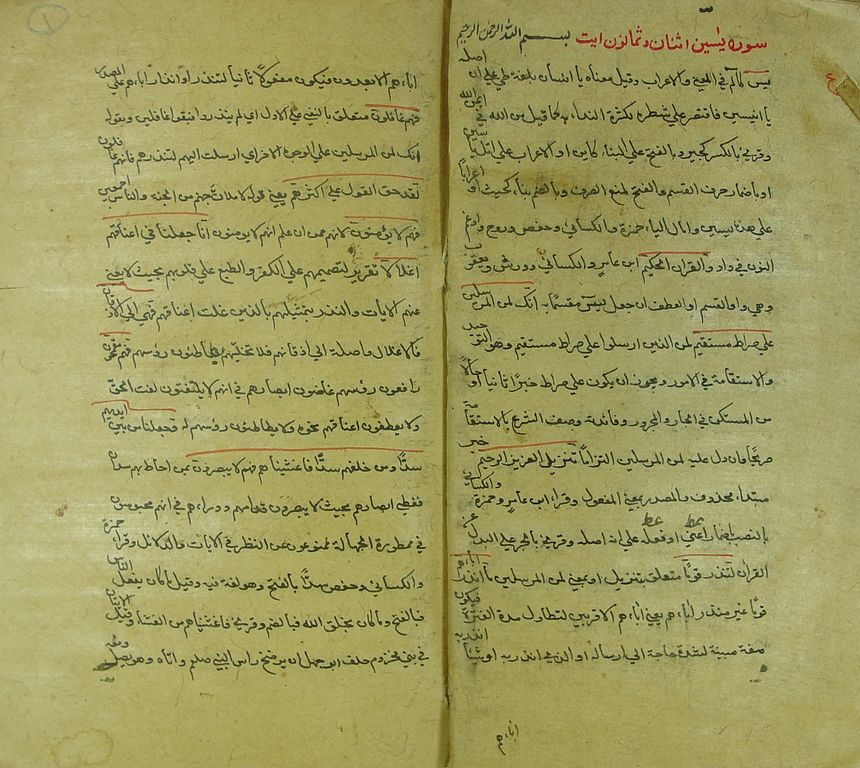 سورة يٰسين اثنان وثمانون ايت بسم الله الرحمن الرحيم
يس كالم في المعنى والاعراب وقيل معناه يا انسان بلغة طي على ان اصله
يا انيسين فاقتصر على شطره لكثرة النداء به كما قيل من الله في ايمن الله
وقرئ بالكسر كجير وبالفتح على البناء كاين او الاعراب على اتل يا سين
او باضمار حرف القسم والفتح لمنع الصرف وبالضم بناء كحيث او اعرابا
على هذه ياسين وامال الياء حمزة والكسائي وحفص وروح وادغم
النون في واو والقرآن الحكيم ابن عامر والكسائي وورش ويعقوب
وهي واو القسم او العطف ان جعل يس مقسما به انك لمن المرسلين
على صراط مستقيم لمن الذين ارسلوا على صراط مستقيم وهو التوحيد
والاستقامة في الامور ويجوز ان يكون على صراط خبرا ثانيا او حالا
من المستكن في الجار والمجرور وفائدته وصف الشرع بالاستقامة
صريحا وان دل عليه لمن المرسلين التزاما تنزيل العزيز الرحيم خبر
مبتداء محذوف والمصدر بمعنى المفعول وقراء ابن عامر وحمزة والكسائي
بالنصب باضمار اعني او فعله على انه اصله وقرئ بالجر على البدل عن
القرآن لتنذر قوما متعلق بتنزيل او بمعنى لمن المرسلين ما انذر اباءهم
قوما غير منذر اباءهم يعني اباءهم الاقربين لتطاول مدة الفترة فيكون
صفة مبينة لشدة حاجة الى ارساله او الذي انذر به او شيئا انذر به
اباء
اباءهم الابعدون فيكون مفعولا ثانيا لتنذر او انذار اباءهم على المصدر
فهم غافلون متعلق بالنفي على الاول اي لم ينذروا فبقوا غافلين وبقوله
انك لمن المرسلين على الوجوه الاخر اي ارسلت اليهم لتنذرهم فانهم غافلون
لقد حق القول على اكثرهم يعني قوله لاملان جهنم من الجنة والناس اجمعين
فهم لا يؤمنون لانهم ممن علم انهم لا يؤمنون انا جعلنا في اعناقهم
اغلالا تقرير لتصميمهم على الكفر والطبع على قلوبهم بحيث لا يغني
عنهم الايات والنذر بتمثيلهم بالذين غلت اعناقهم فهي الى الاذقان
فالاغلال واصلة الى اذقانهم فلا تخليهم يطاطئون رؤسهم فهم مقمحون
رافعون رؤسهم غاضون ابصارهم في انهم لا يلتفتون لفت الحق
ولا يعطفون اعناقهم نحوه ولا يطاطئون رؤسهم له وجعلنا من بين ايديهم
سدا ومن خلفهم سدا فاغشيناهم فهم لا يبصرون بمن احاط بهم سدان
فغطى ابصارهم بحيث لا يبصرون قدامهم ووراءهم في انهم محبوسون
في مطمورة الجهالة ممنوعون عن النظر في الايات والدلائل وقراء حمزة
والكسائي وحفص سدا بالفتح وهو لغة فيه وقيل ما كان بفعل الناس
فبالفتح وما كان بخلق الله فبالضم وقرئ فاغشيناهم من العشاء وقيل الايتان
في بني مخزوم حلف ابو جهل ان يرضخ راس النبي صلعم واتاه وهو يصلي ومعه